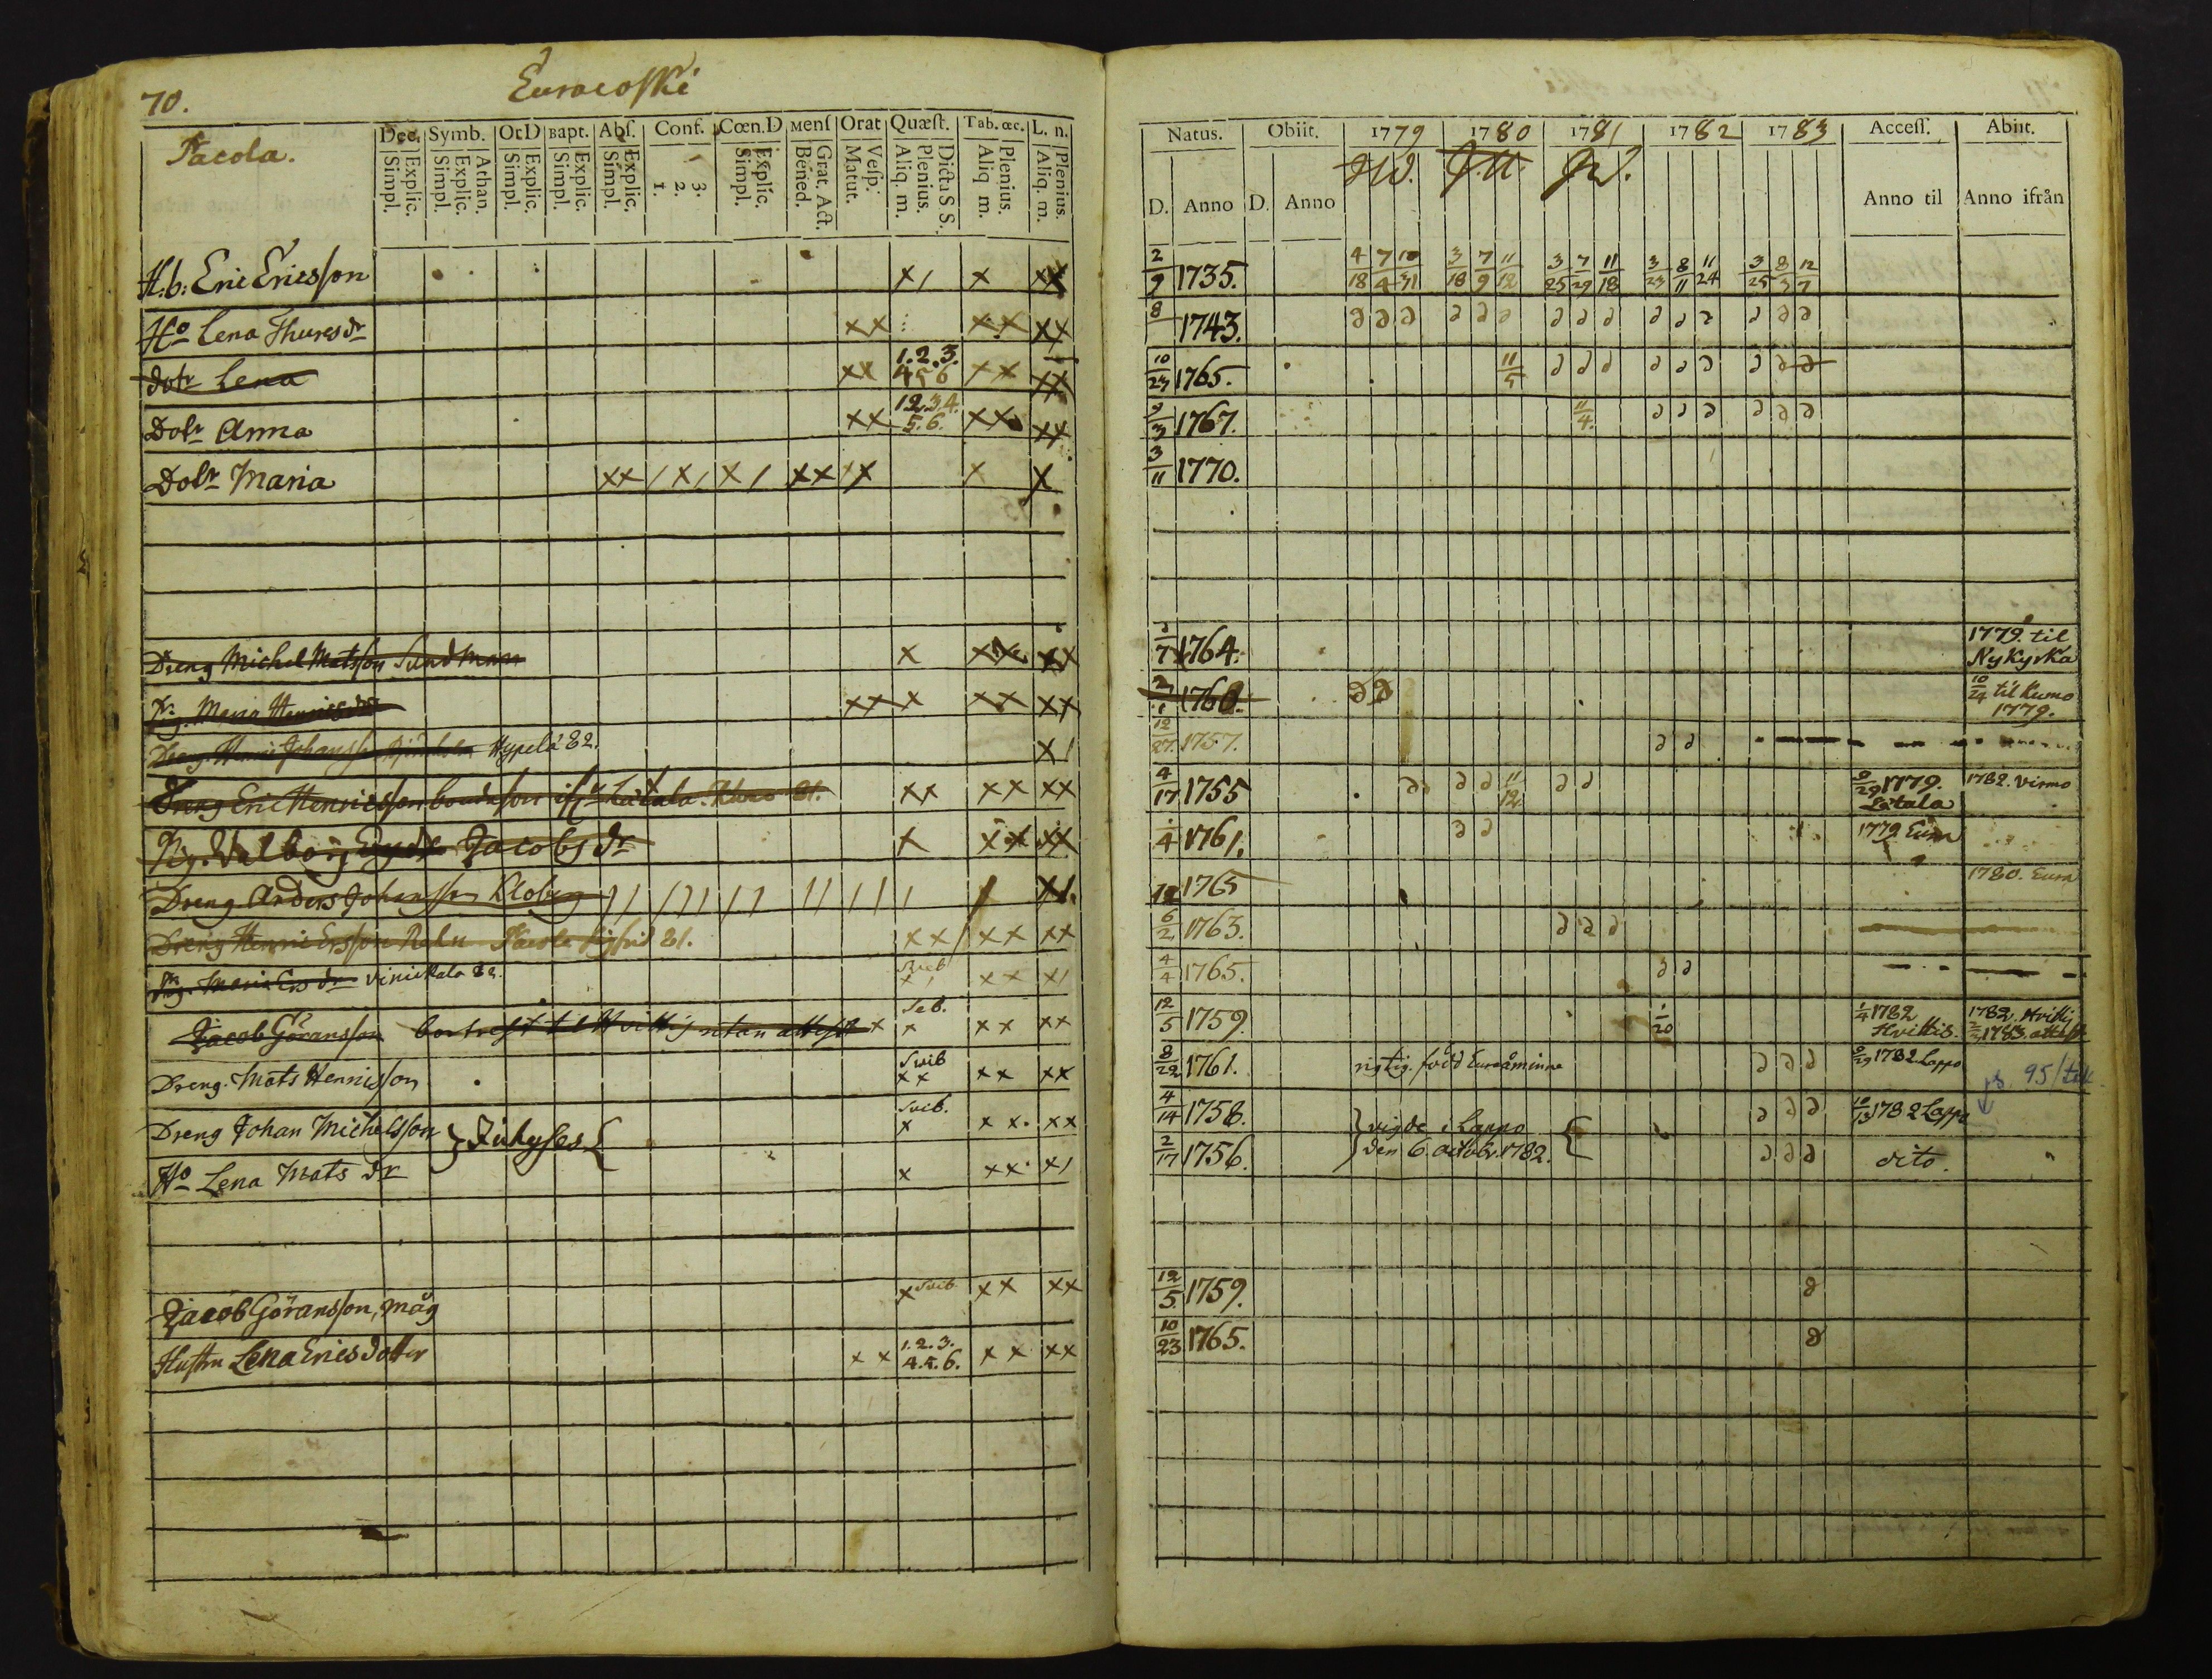 70.
Euracoski
Pacola.
Dec. Symb. Or.D Bapt. Abſ. Conf. Cœn.D Menſ Orat Quæſt. Tab. œc. L. n.
Explic. Simpl. Athan. Explic. Simpl. Explic. Simpl. Explic. Simpl. Explic. Simpl. 3. 2. 1. Explic. Simpl. Grat. Act. Bened. Veſp. Matut. Dicta S S. Plenius. Aliq. m. Plenius. Aliq m. Plenius. Aliq. m.
H:b: Eric Ericsson x/ x xx
Ho Lena Thuresdr xx xx xx
dotr Lena xx 1.2.3. 4 5 6 xx xx
Dotr Anna xx 1.2.3.4. 5.6. xx xx
Dotr Maria xx / x / x / xx xx x x
Dreng Michel Matsson Sundman x xx xx
Pig. Maria Henricsdr xx x xx xx
Dreng Henric Johansson Hypelä 82. x/
Dreng Eric Henricsson xx xx xx
Pig. Valborg Jacobs dr x xx xx
Dreng Anders Johansson // /// // // // / / x/.
Dreng Henric Ersson 81. xx/ xx xx
Pig. Maria Ers dr Vinickala 82. xx x/
Jacob Göransson bortrest til Hvittis utan attest x xx xx
Dreng. Mats Henricsson xx xx xx
Dreng Johan Michelsson x xx. xx
Ho Lena Mats dr x xx. x/
Jacob Göransson, måg x xx xx
Hustru Lena Ericsdotter xx 1.2.3. 4.5.6. xx xx
Natus. Obiit. 1779 1780 1781 1782 1783 Acceſſ. Abiit.
D. Anno D. Anno Anno til Anno ifrån
2/9 1735. 4/18 7/4 10/31 3/18 7/9 11/12 3/25 7/29 11/18 3/23 8/11 11/24 3/25 8/3 12/7
8 1743.
10/23 1765. 11/5
9/3 1767. 11/4
3/11 1770.
1764. 1779. til Nykyrka
1760. 10/24 til Kumo 1779.
12/27 1757.
4/17 1755 11/12 9/29 1779. Letala 1782. Virmo
1/4 1761. 1779 Eura
12 1765 1780. Eura
6/2 1763.
4/4 1765.
12/5 1759. 1/20 1/4 1782 Hvittis. 1782. Hvittis 1783. attest
8/22 1761. rigtig. född Euraåminne 9/29 1782 Lappo 95/
4/14 1758. vigde i Lappo 10/13 1782 Lappo
2/17 1756. den 6. octobr. 1782. dito.
12/5 1759.
10/23 1765.